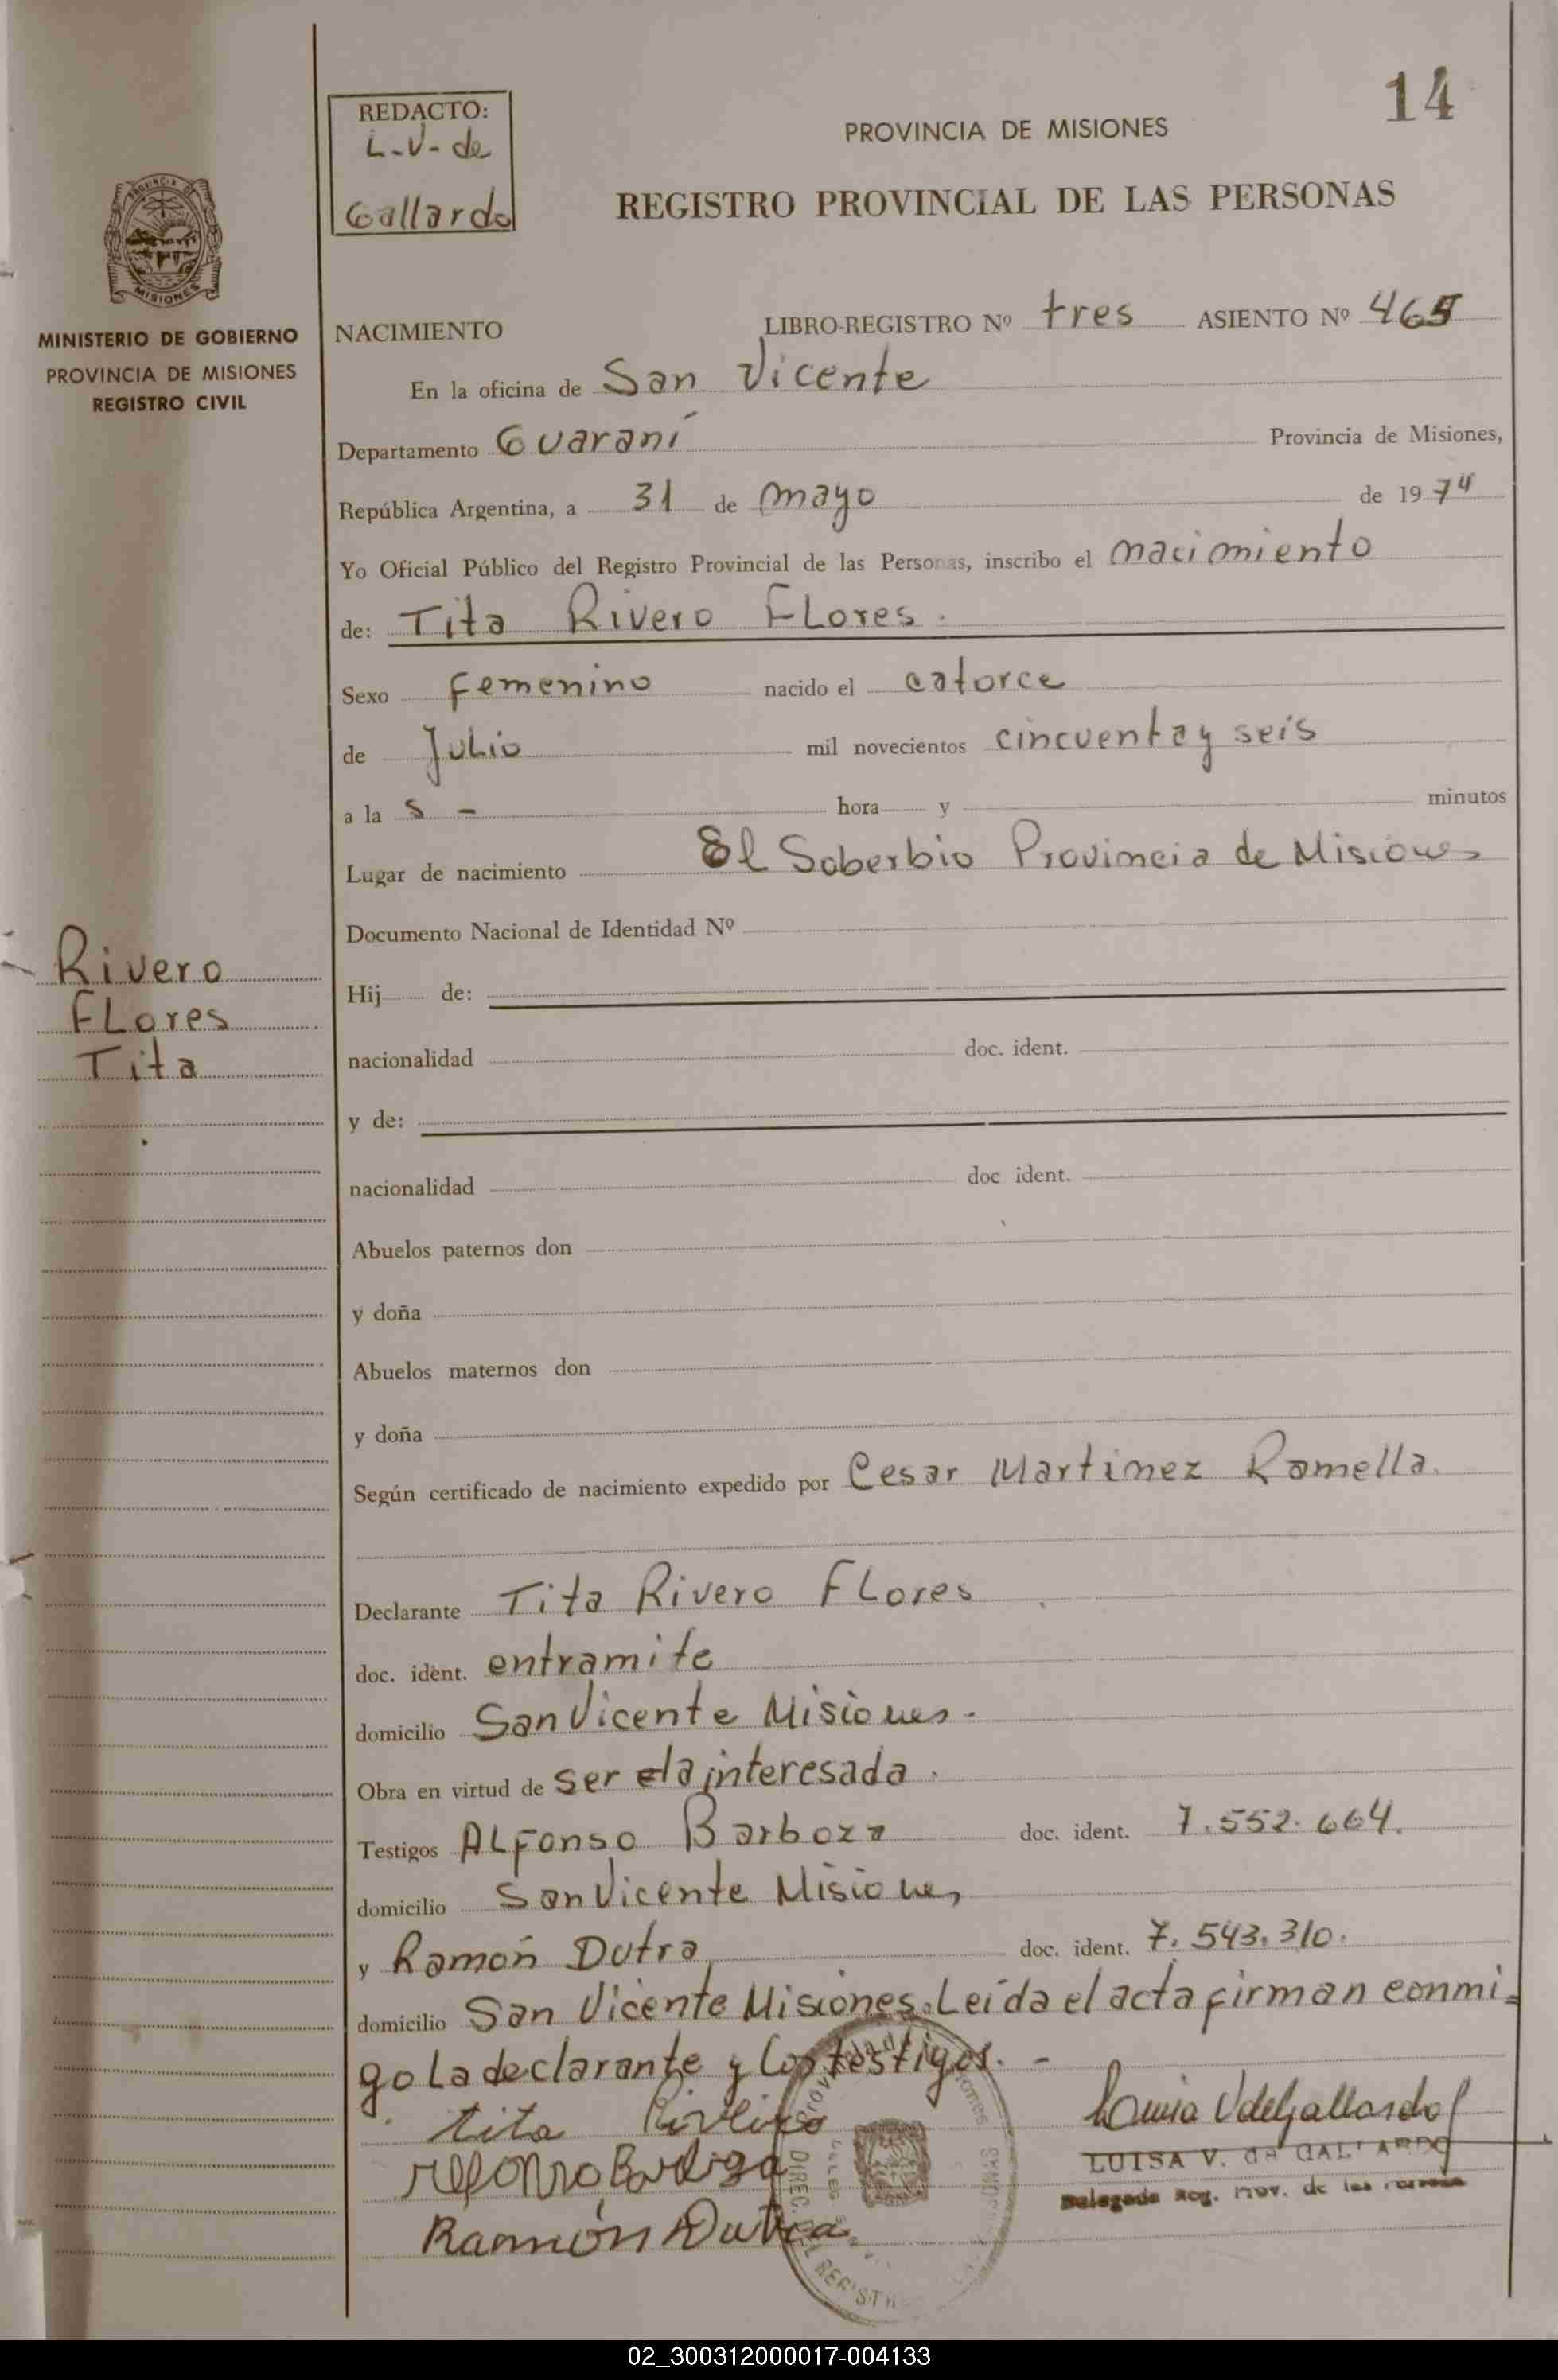 14
REDACTO:
L-V-de
Gallardo
PROVINCIA DE MISIONES
REGISTRO PROVINCIAL DE LAS PERSONAS
MISIONES
MINISTERIO DE GOBIERNO
PROVINCIA DE MISIONES
REGISTRO CIVIL
NACIMIENTO LIBRO-REGISTRO Nº tres ASIENTO Nº 465
En la oficina de San Vicente
Departamento Guaraní Provincia de Misiones,
República Argentina, a 31 de mayo de 1974
Yo Oficial Público del Registro Provincial de las Personas, inscribo el nacimiento
de: Tita Rivero FLores.
Sexo Femenino nacido el catorce
de Julio mil novecientos cincuenta y seis
a la s - hora y minutos
Lugar de nacimiento El Soberbio Provincia de Misiones
Documento Nacional de Identidad Nº
Rivero
FLores
Tita
Hij de:
nacionalidad doc. ident.
y de:
nacionalidad doc ident.
Abuelos paternos don
y doña
Abuelos maternos don
y doña
Según certificado de nacimiento expedido por Cesar Martinez Ramella.
Declarante Tita Rivero FLores
doc. ident. entramite
domicilio San Vicente Misiones.
Obra en virtud de ser la interesada.
Testigos ALFonso Barboza doc. ident. 7.552.664.
domicilio San Vicente Misiones
y Ramón Dutra doc. ident. 7.543.310.
domicilio San Vicente Misiones. Leída el acta firman conmi-
go La declarante y Los testigos. -
Tita
Ramón Dutra
Luisa V de Gallardo
LUISA V. de GALLARDO
Delegada Reg. Prov. de las
02_300312000017-004133